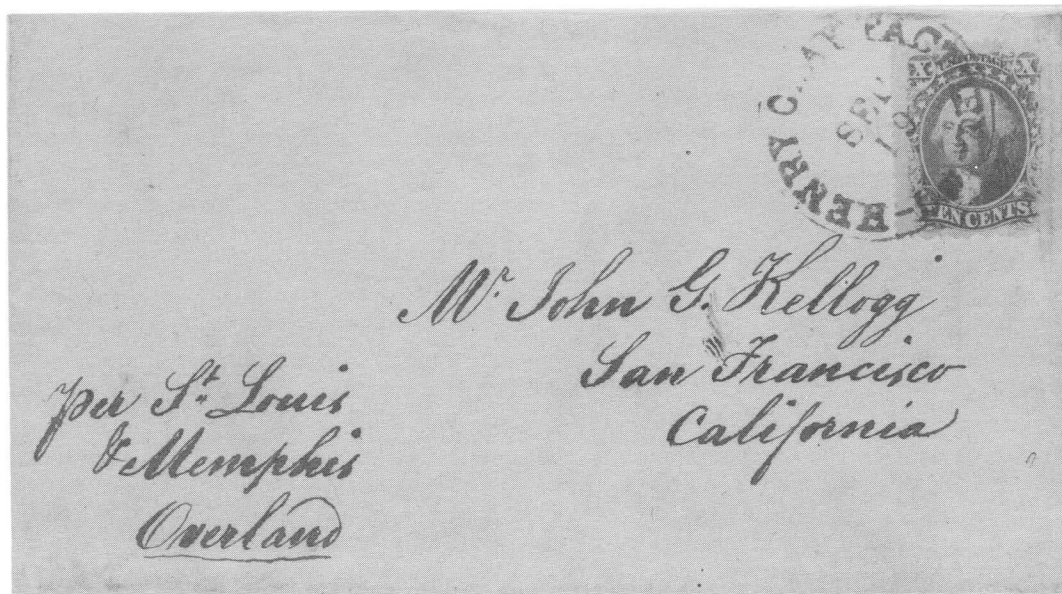 HENRY CLAY FACT
SEP
19
X U.S. POSTAGE X
TEN CENTS
Mr. John G. Kellogg
San Francisco
California
per St. Louis
& Memphis
Overland